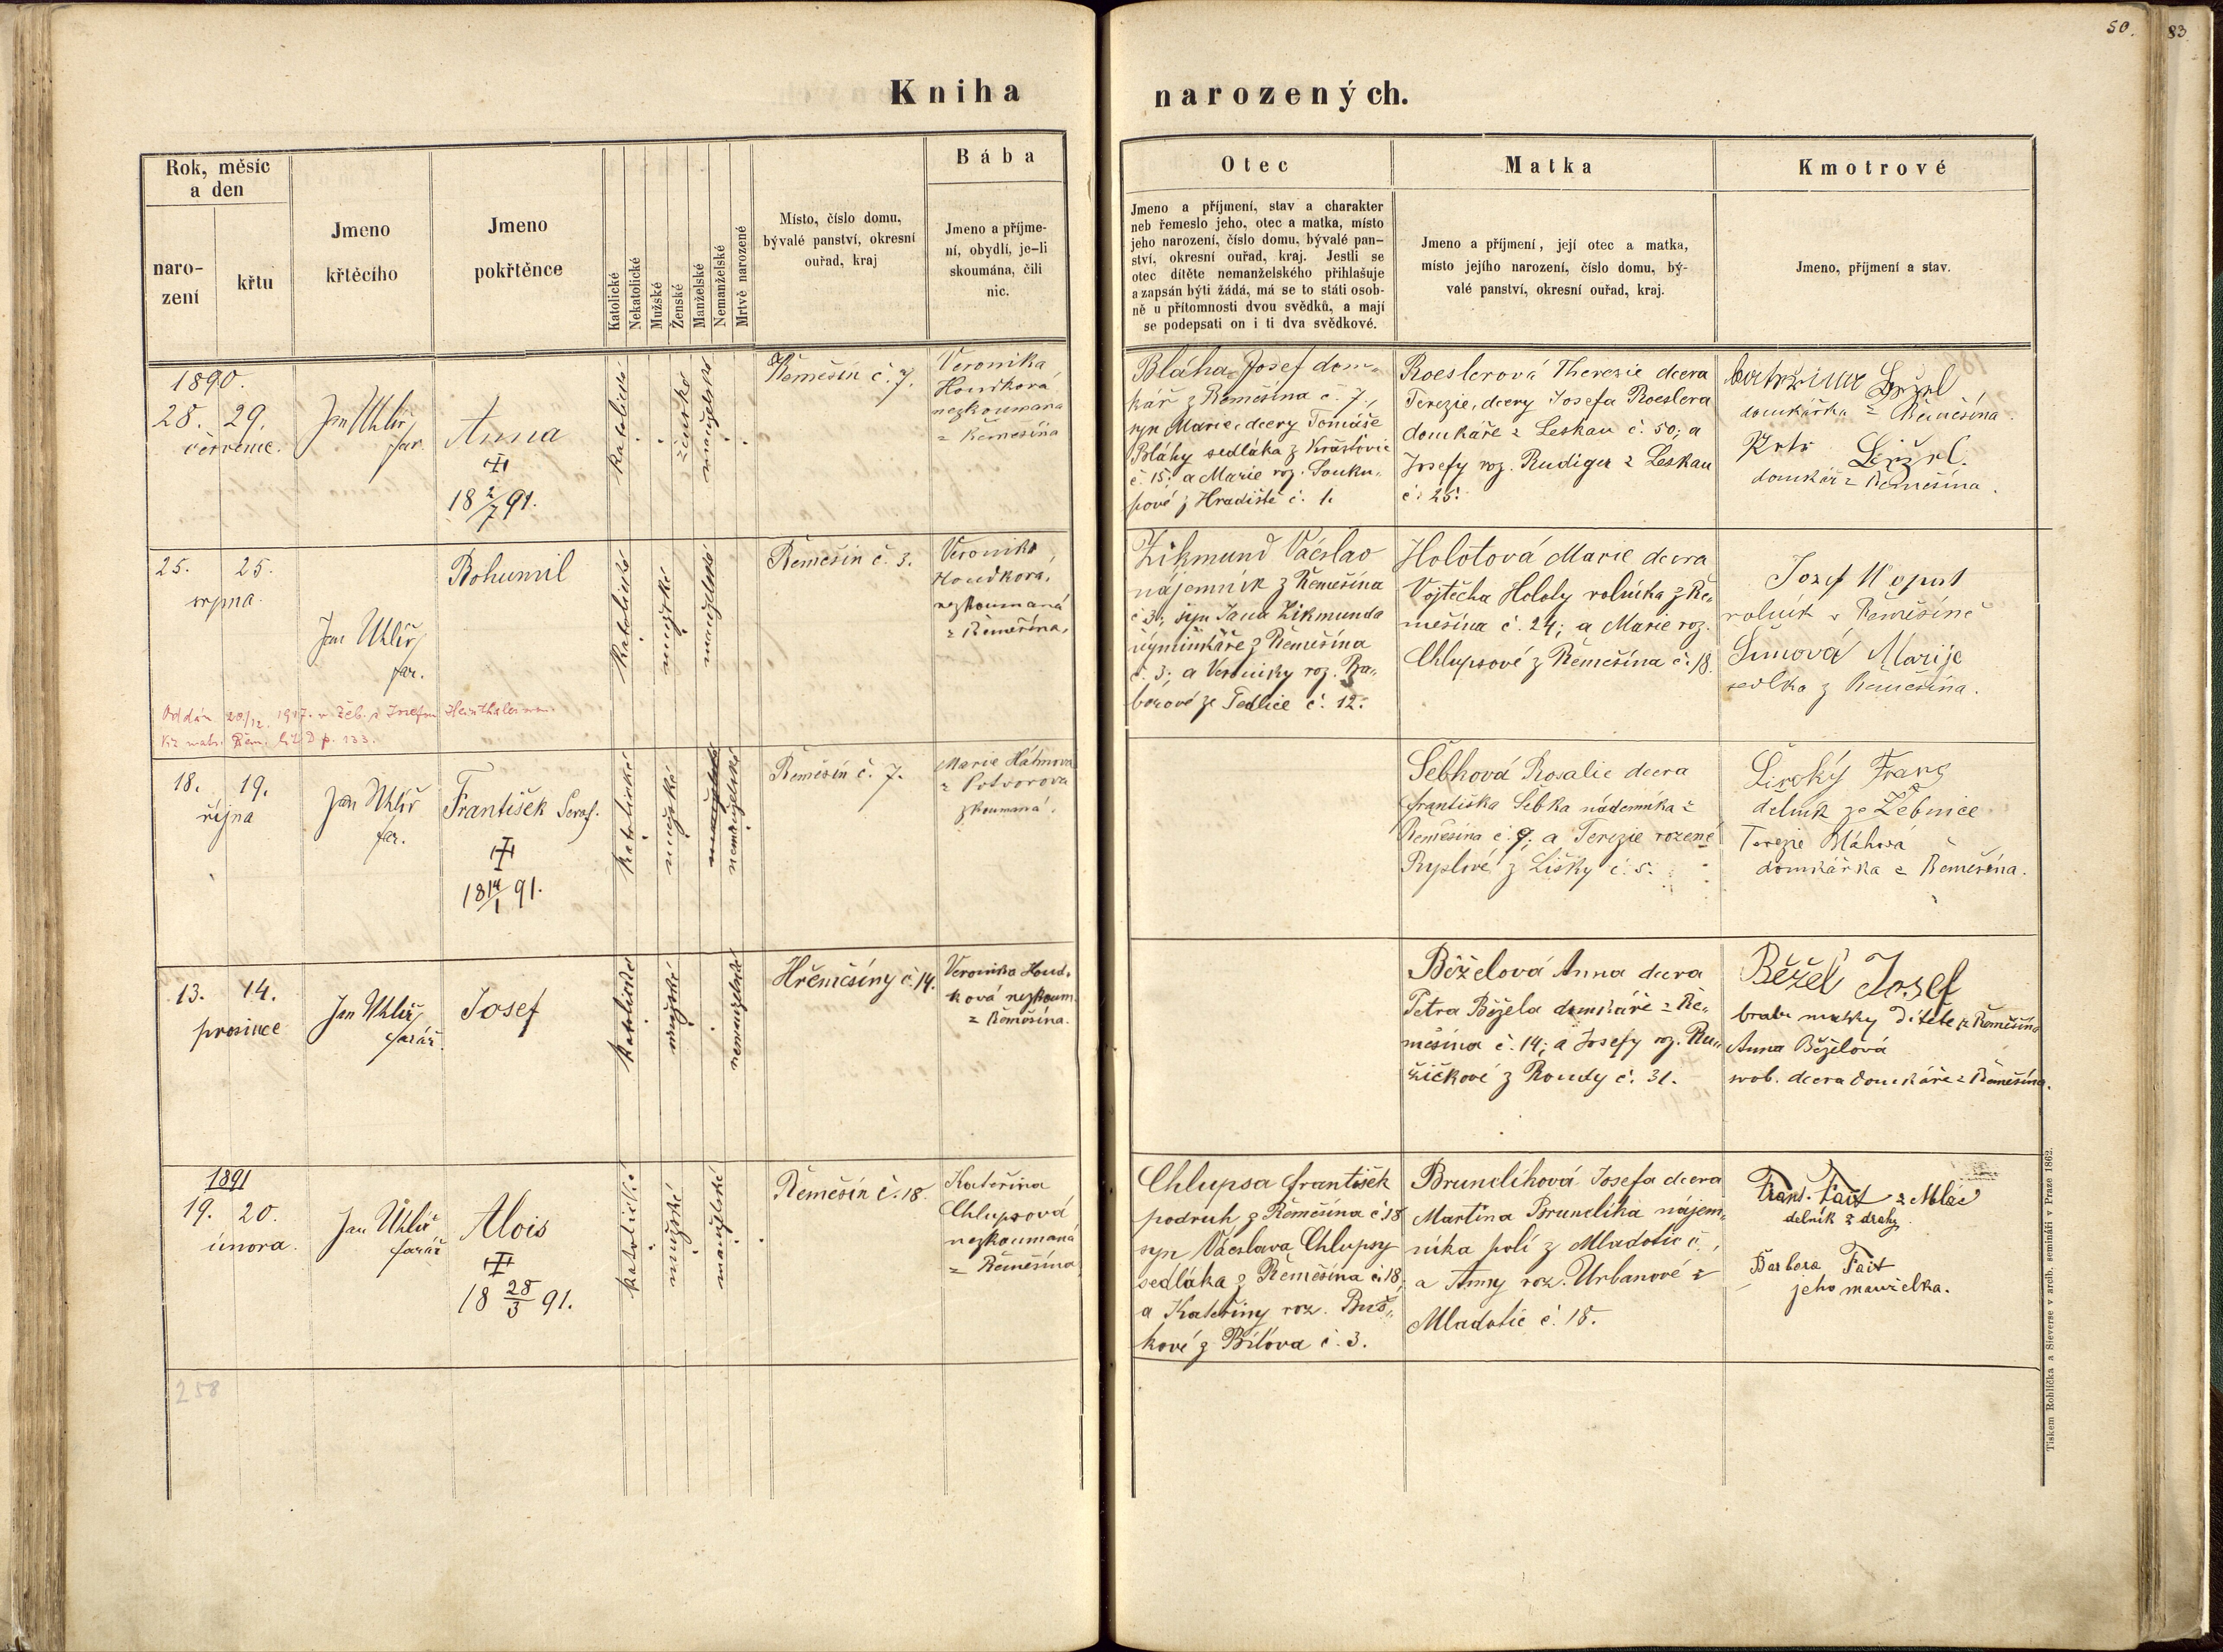 50.
83
Kniha
narozených.
Rok, měsíc
a den
naro-
zení
křtu
Jmeno
křtěcího
Jmeno
pokřtěnce
Katolické
Nekatolické
Mužské
Ženské
Manželské
Nemanželské
Mrtvě narozené
Místo, číslo domu,
bývalé panství, okresní
ouřad, kraj
Bába
Jmeno a příjme-
ní, obydlí, je-li
skoumána, čili
nic.
Otec
Jmeno a příjmení, stav a charakter
neb řemeslo jeho, otec a matka, místo
jeho narození, číslo domu, bývalé pan-
ství, okresní ouřad, kraj. Jestli se
otec dítěte nemanželského přihlašuje
a zapsán býti žádá, má se to státi osob-
ně u přítomnosti dvou svědků, a mají
se podepsati on i ti dva svědkové.
Matka
Jmeno a příjmení, její otec a matka,
místo jejího narození, číslo domu, bý-
valé panství, okresní ouřad, kraj.
Kmotrové
Jmeno, příjmení a stav.
1890.
28. 29.
července.
Jan Uhlíř
far.
Anna
18 2/7 91.
katolické
ženské
manželské
Řemešín č. 7.
Veronika
Houdková
nezkoumaná
z Řemešína
Bláha Josef dom-
kář z Řemešína č. 7.,
syn Marie, dcery Tomáše
Bláhy sedláka z Krašťovic
č. 15; a Marie roz. Souku-
pové z Hradiště č. 1.
Roeslerová Therezie dcera
Terezie, dcery Josefa Roeslera
domkáře z Leskau č. 50; a
Josefy roz. Rudiger z Leskau
č. 25.
domkářka z Řemešína.
domkář z Řemešína.
25. 25.
srpna.
Jan Uhlíř
far.
Bohumil
katolické
mužské
manželské
Řemešín č. 3.
Veronika
Houdková,
nezkoumaná
z Řemešína.
Zikmund Václav
nájemník z Řemešína
č. 3, syn Jana Zikmunda
výminkáře z Řemešína
č. 3; a Veroniky roz. Ba-
borové ze Sedlice č. 12.
Holotová Marie dcera
Vojtěcha Holoty rolníka z Ře-
mešína č. 24; a Marie roz.
Chlupsové z Řemešína č. 18.
Josef Wopat
rolník v Řemešíně
Šimová Marije
sedlka z Řemešína.
Oddán 20/12. 1917. v Žeb. s Josefou
Viz matr. Řem. lit D p. 133.
18. 19.
října
Jan Uhlíř
far.
František Seraf.
18 14/1 91.
katolické
mužské
manželské
nemanželské
Řemešín č. 7.
Marie Háhnová
z Potvorova
zkoumaná.
Šebková Rosalie dcera
Františka Šebka nádeníka z
Řemešína č. 9; a Terezie rozené
Ryplové z Lišky č. 5.
Široký Franz
dělník ze Žebnice
Terezie Bláhová
domkářka z Řemešína.
13. 14.
prosince
Jan Uhlíř
farář.
Josef
katolické
mužské
nemanželské
Hřemešíny č. 14.
Veronika Houd-
ková nezkoum.
z Řemešína.
Běželová Anna dcera
Petra Běžela domkáře z Ře-
mešína č. 14; a Josefy roz. Rů-
žičkové z Roudy č. 31.
Běžel Josef
bratr matky dítěte z Řemešína
Anna Běželová
svob. dcera domkáře z Řemešína.
1891
19. 20.
února.
Jan Uhlíř
farář
Alois
18 28/3 91.
katolické
mužské
manželské
Řemešín č. 18.
Kateřina
Chlupsová
nezkoumaná
z Řemešína
Chlupsa František
podruh z Řemešína č. 18
syn Václava Chlupsy
sedláka z Řemešína č. 18;
a Kateřiny roz. Buš-
kové z Bílova č. 3.
Brunclíková Josefa dcera
Martina Brunclíka nájem-
níka polí z Mladotic č.,
a Anny roz. Urbanové z
Mladotic č. 18.
Frant. Fait z Mlad
dělník z dráhy.
Barbora Fait
jeho manželka.
258
Tiskem Rohlíčka a Sieverse v arcib. semináři v Praze 1862.